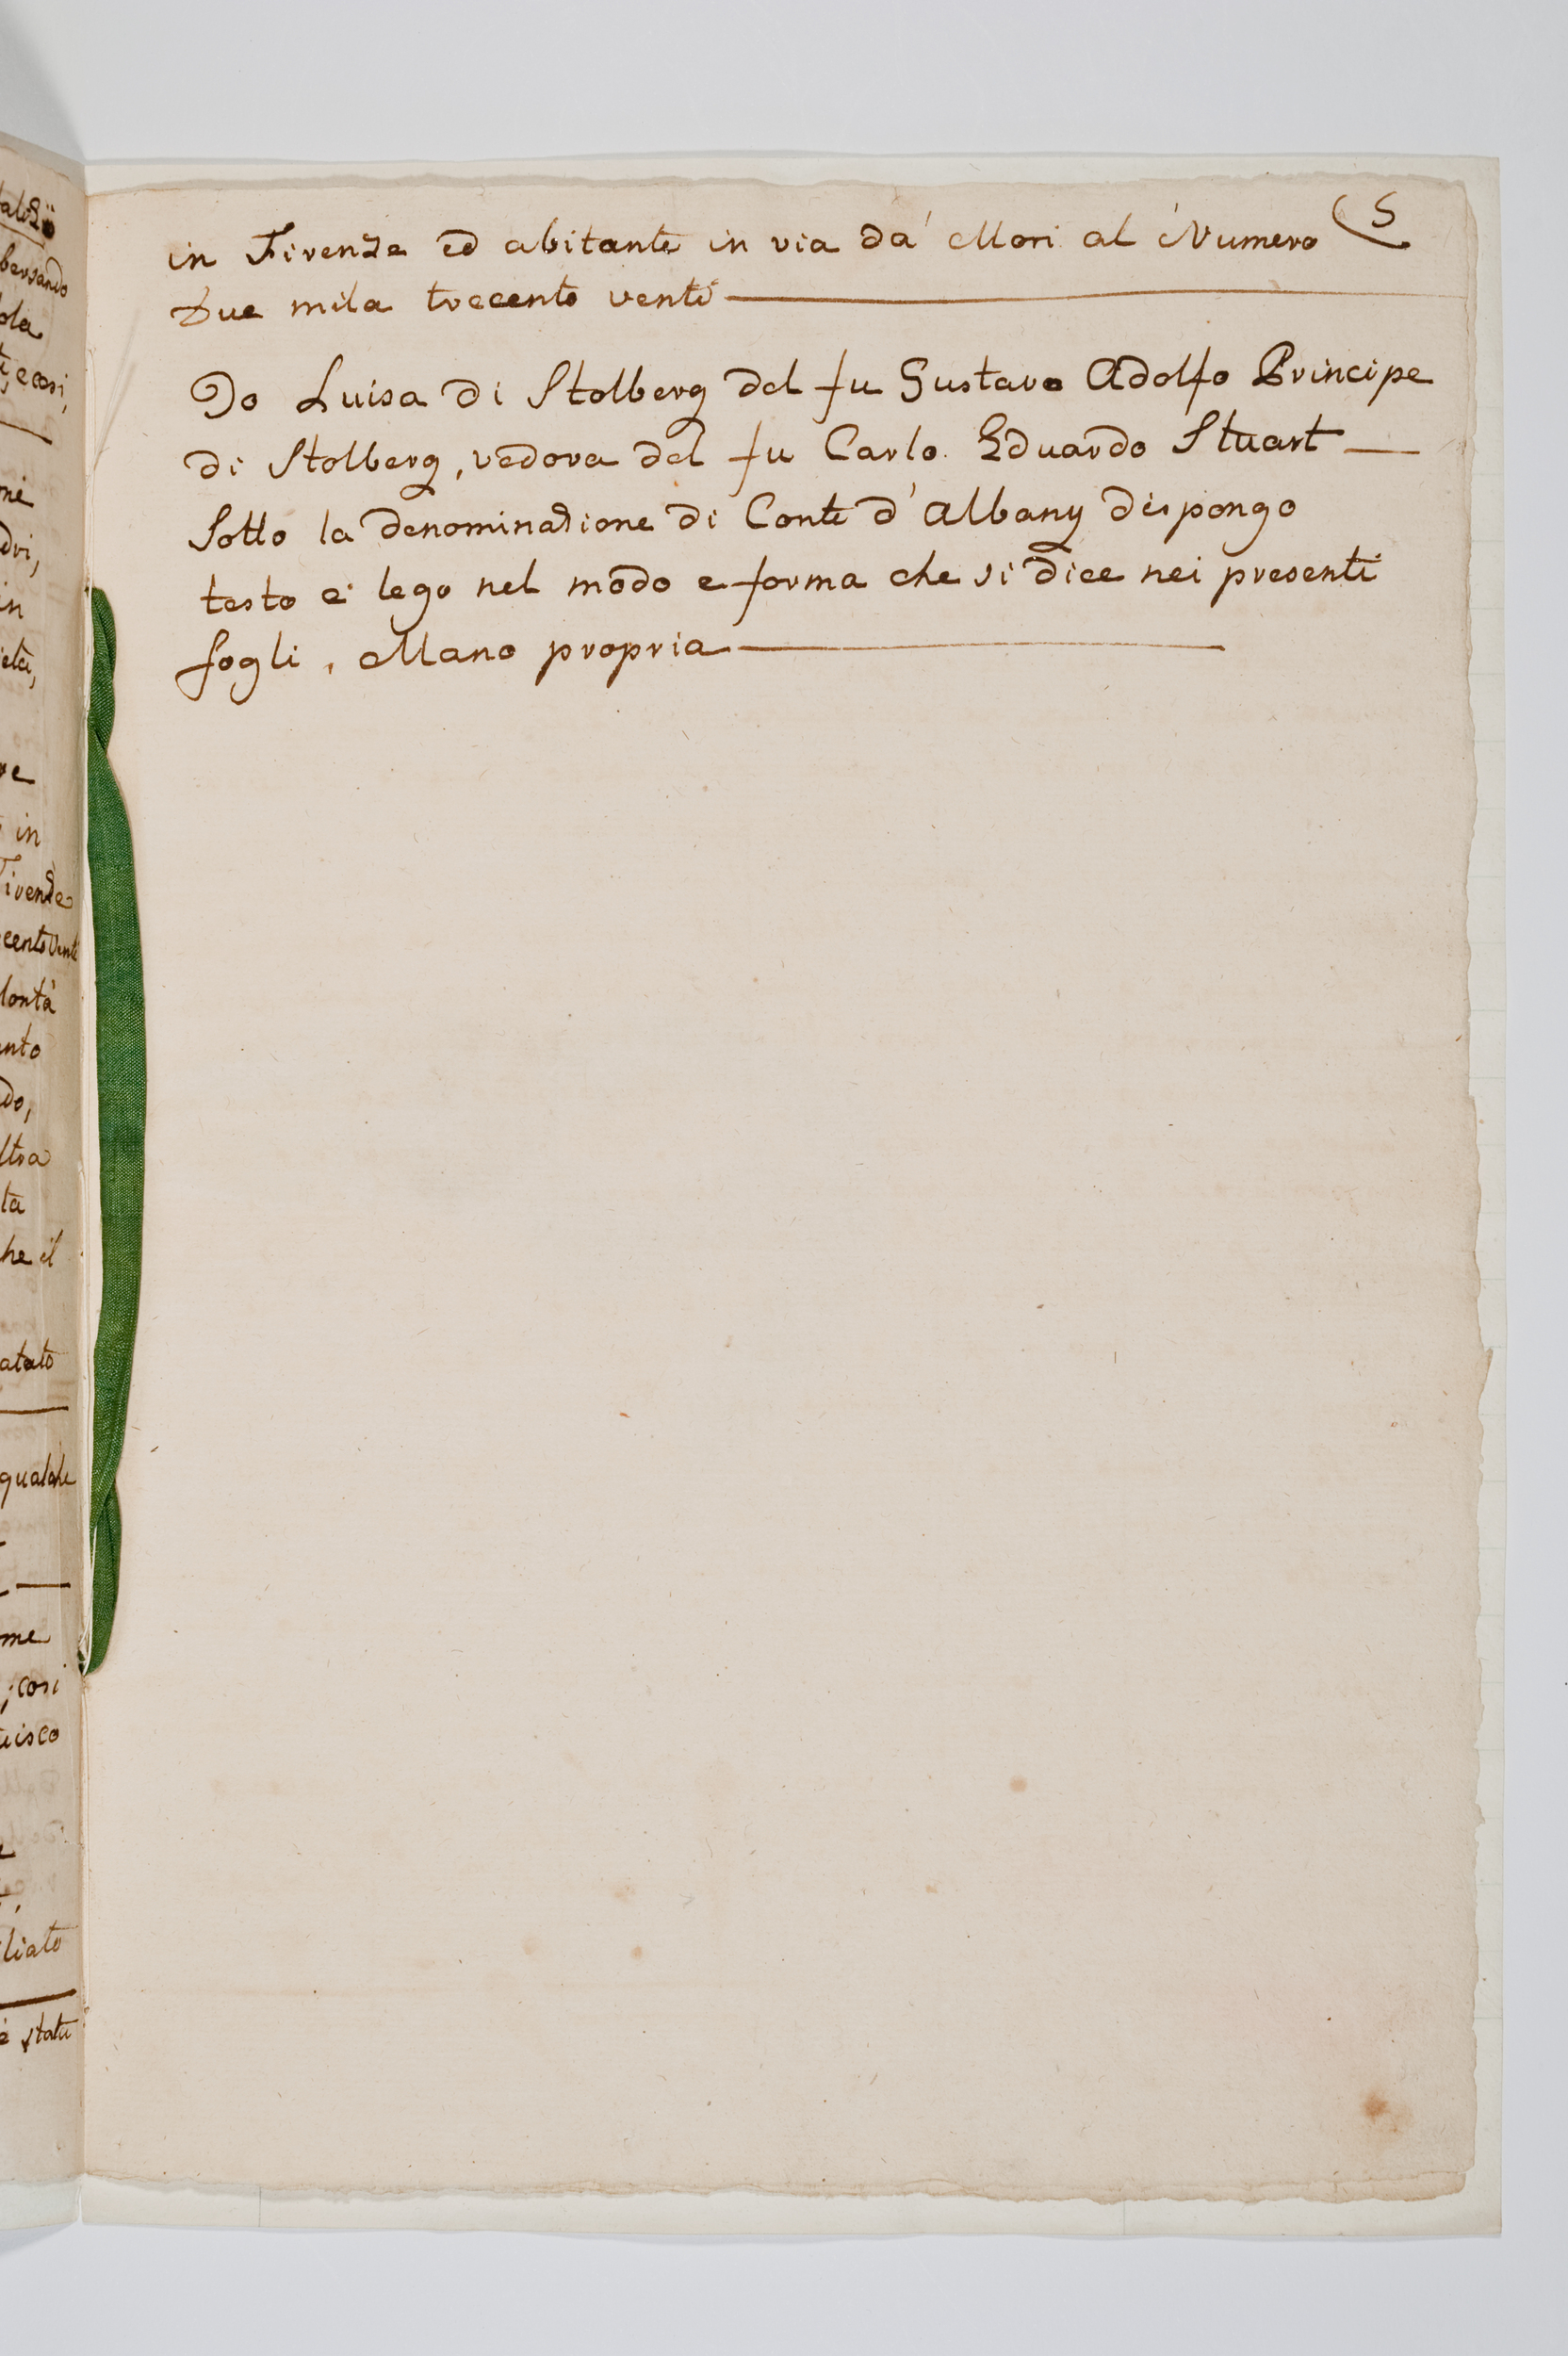 5
in Firenze ed abitante in via da' Mori al Numero
Due mila trecento venti
Io Luisa di Stolberg del fu Gustavo Adolfo Principe
di Stolberg, vedova del fu Carlo Eduardo Stuart
Sotto la denominazione di Conte d'Albany dispongo
testo e lego nel modo e forma che si dice nei presenti
fogli, Mano propria
bersando
e cosi,
in
in
lontà
he il
me
; cosi
liato
è stata